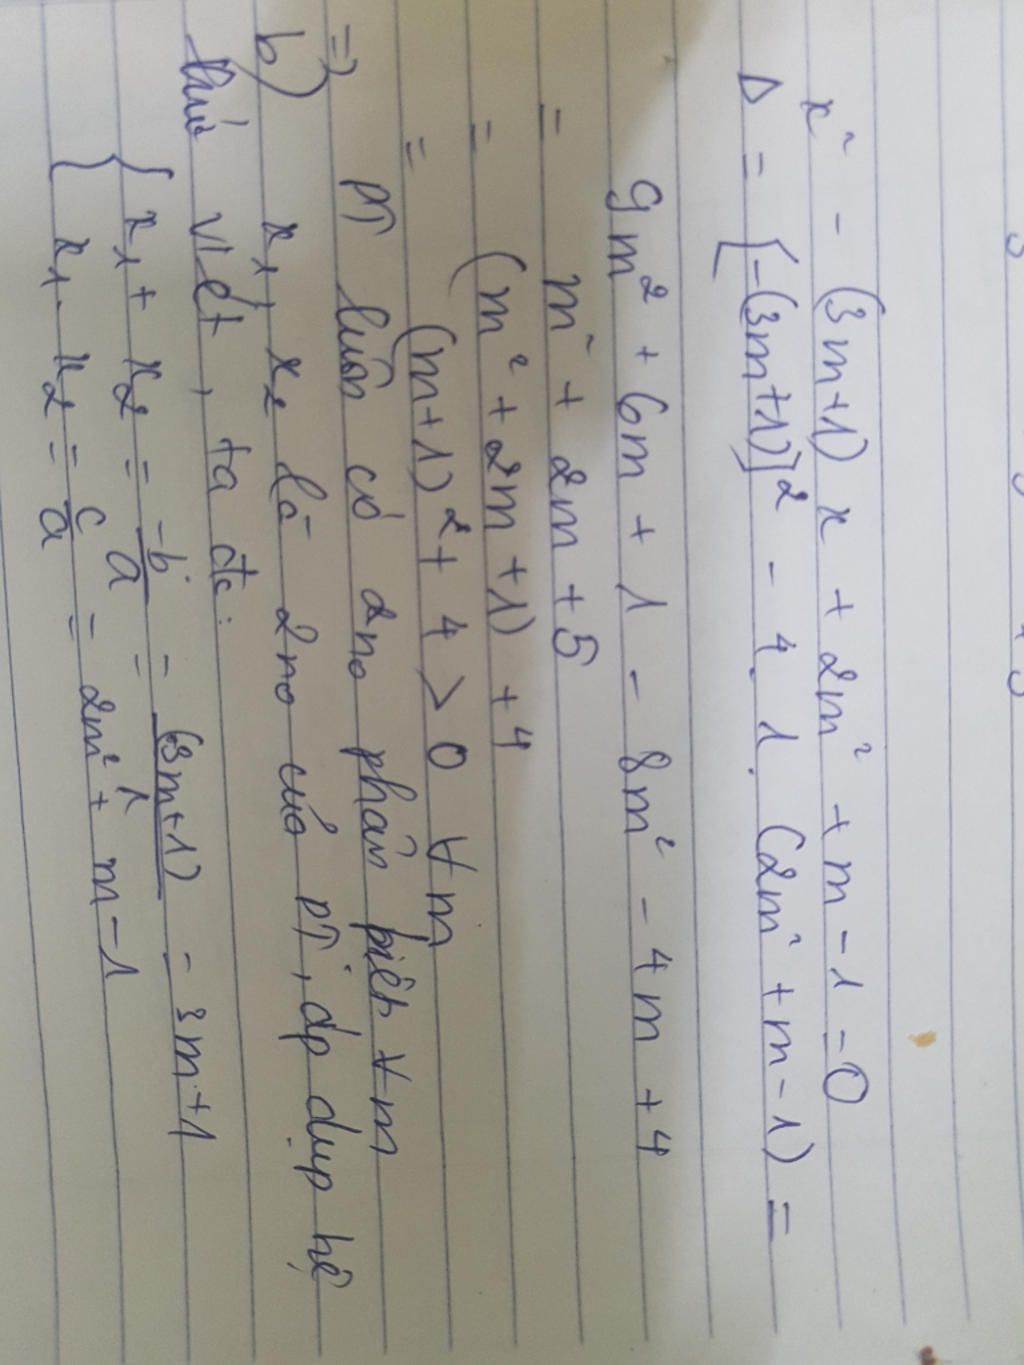 x² - (3m+1) x + 2m² + m - 1 = 0
Δ = [-(3m+1)]² - 4. 1. (2m² + m - 1) =
9m² + 6m + 1 - 8m² - 4m + 4
= m² + 2m + 5
= (m² + 2m + 1) + 4
= (m+1)² + 4 > 0 ∀m
=> PT luôn có 2no phân biệt ∀m
b) x₁, x₂ là 2no của PT, áp dụng hệ
thức viét, ta đc:
{ x₁ + x₂ = -b/a = (3m+1)/1 = 3m+1
x₁. x₂ = c/a = 2m² + m - 1